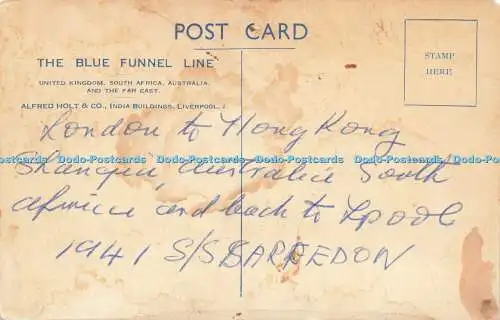 POST CARD
THE BLUE FUNNEL LINE
UNITED KINGDOM, SOUTH AFRICA, AUSTRALIA,
AND THE FAR EAST.
ALFRED HOLT & CO., INDIA BUILDINGS, LIVERPOOL, 2
STAMP
HERE
London to Hong Kong
Dodo-Postcards Dodo-Postcards Dodo-Postcards Dodo-Postcards Dodo-Postcards
Shangie, australie South
africa and back to Lpool
1941 S/S SARPEDON